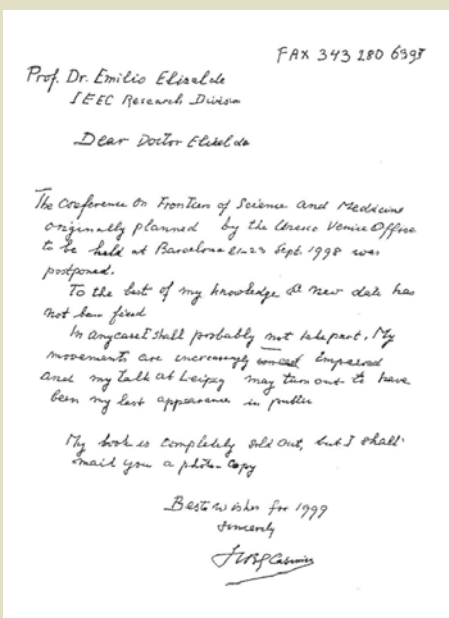 FAX 343 280 6395
Prof. Dr. Emilio Elizalde
IEEC Research Division
Dear Doctor Elizalde
The Conference on Frontiers of Science and Medicine
originally planned by the Unesco Venice Office
to be held at Barcelona 21-23 Sept. 1998 was
postponed.
To the best of my knowledge a new date has
not been fixed
In any case I shall probably not take part. My
movements are increasingly impaired
and my talk at Leipzig may turn out to have
been my last appearance in public
My book is completely sold out, but I shall
mail you a photo-copy
Best wishes for 1999
Sincerely
HBG Casimir